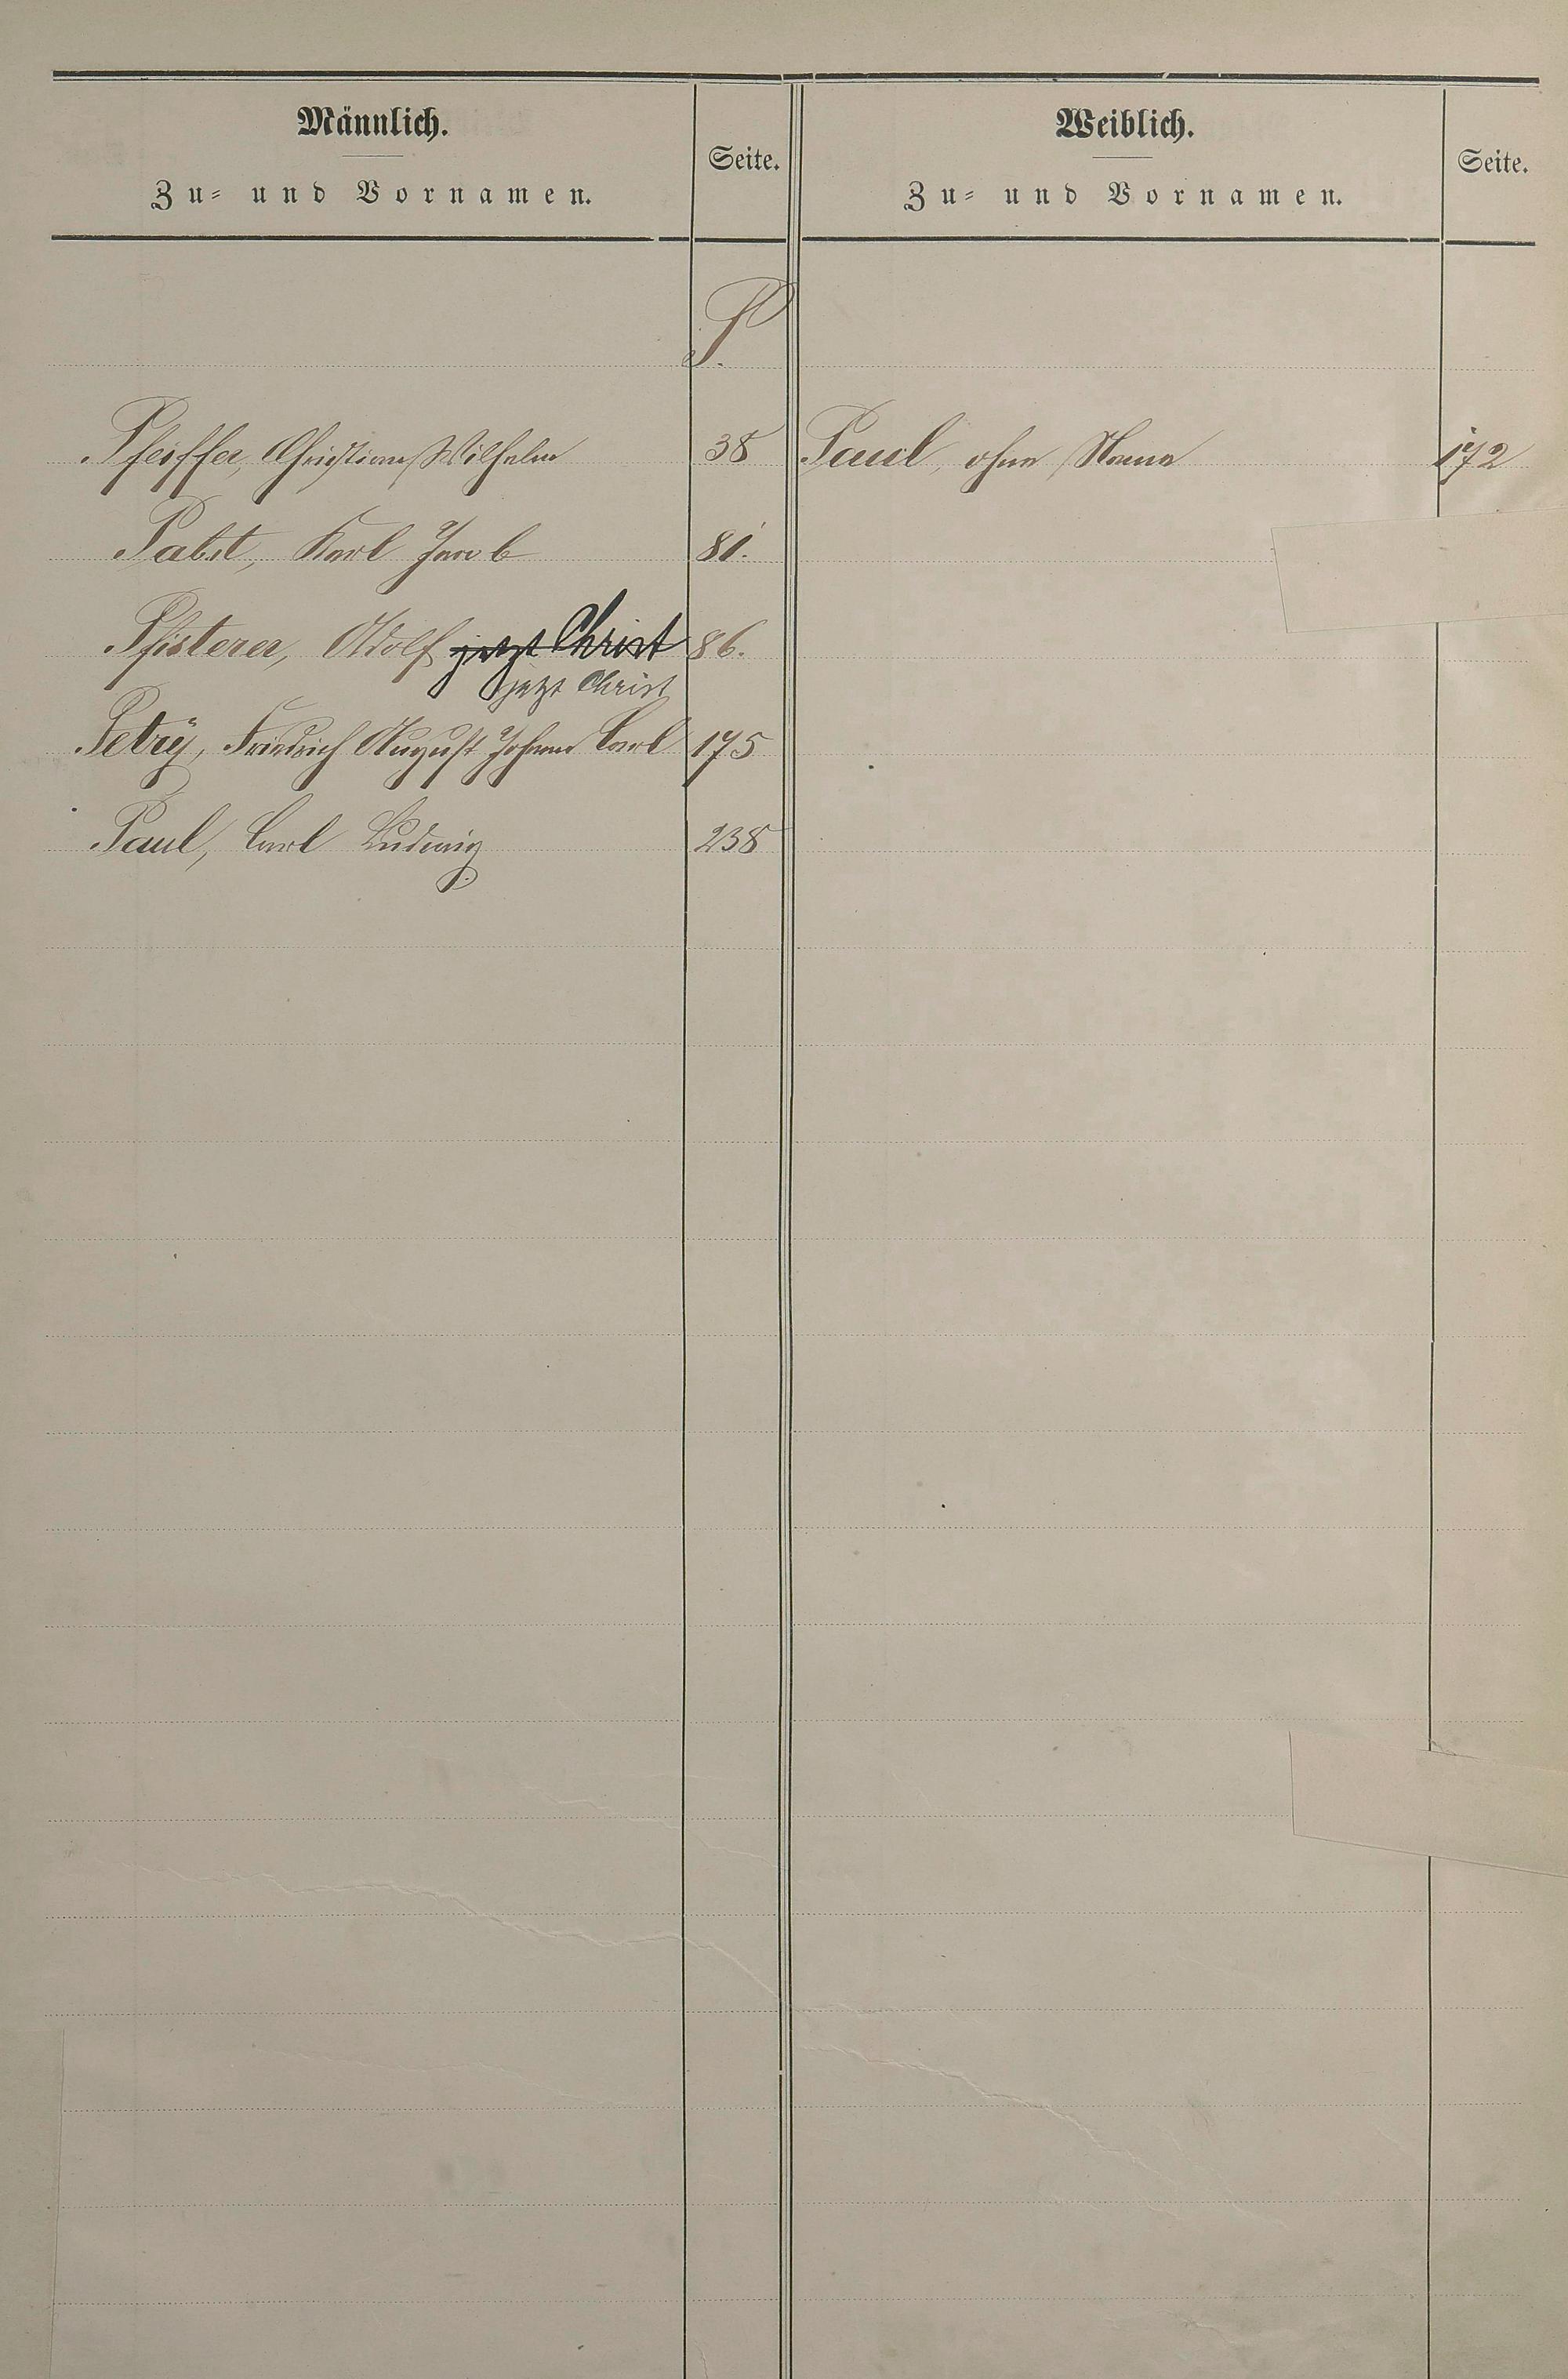 Männlich.
Zu- und Vornamen.
Seite.
Weiblich.
Zu- und Vornamen.
Seite.
P.
Pfeiffer, Christian Wilhelm 38
Paul, ohne Name 172
Pabst, Karl Jacob 81.
Pfisterer, Adolf jetzt Christ 86.
jetzt Christ
Petry, Friedrich August Johann Carl 175
Paul, Carl Ludwig 238